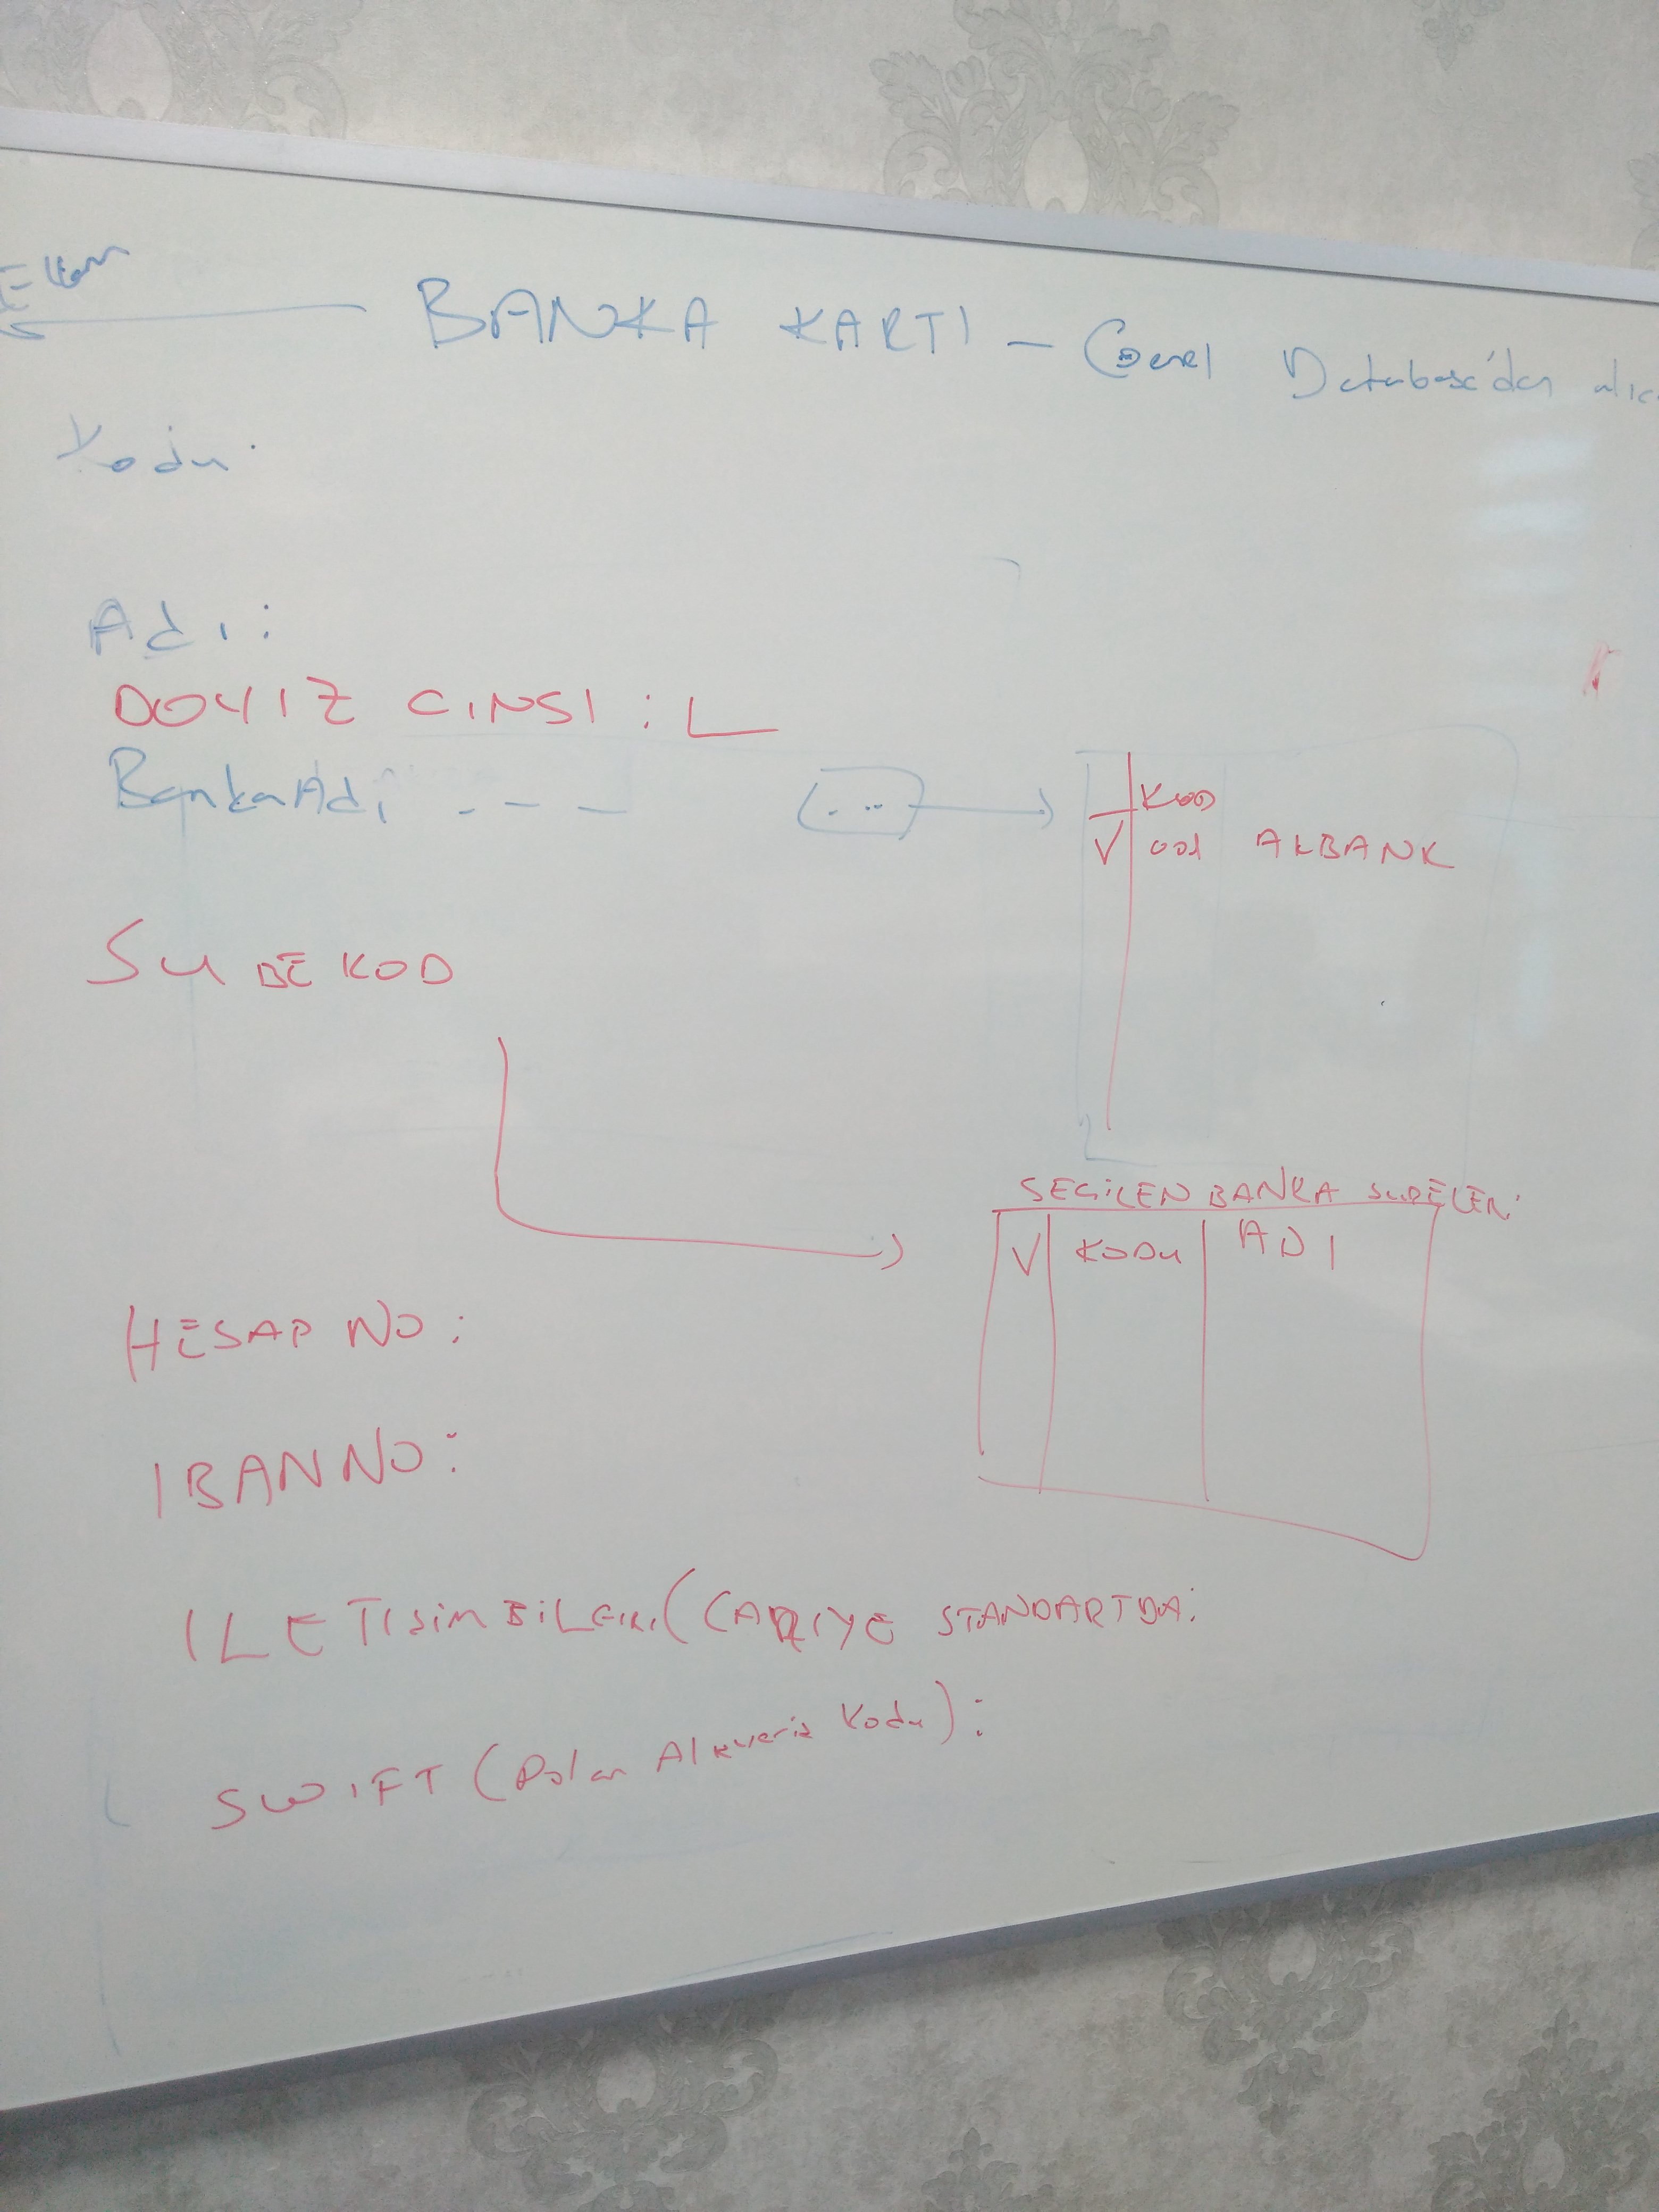 BANKA KARTI - Genel Database'den
Kodu:
Adı:
DOVIZ CINSI :
Banka Adı - - -
...
KOD
V 001 AKBANK
SUBE KOD
SEÇİLEN BANKA SUBELERİ
V KODU ADI
HESAP NO :
IBAN NO :
ILETISIM BILGILERI (CARIYE STANDARTDA:
SWIFT ( Alisveris Kodu ) :